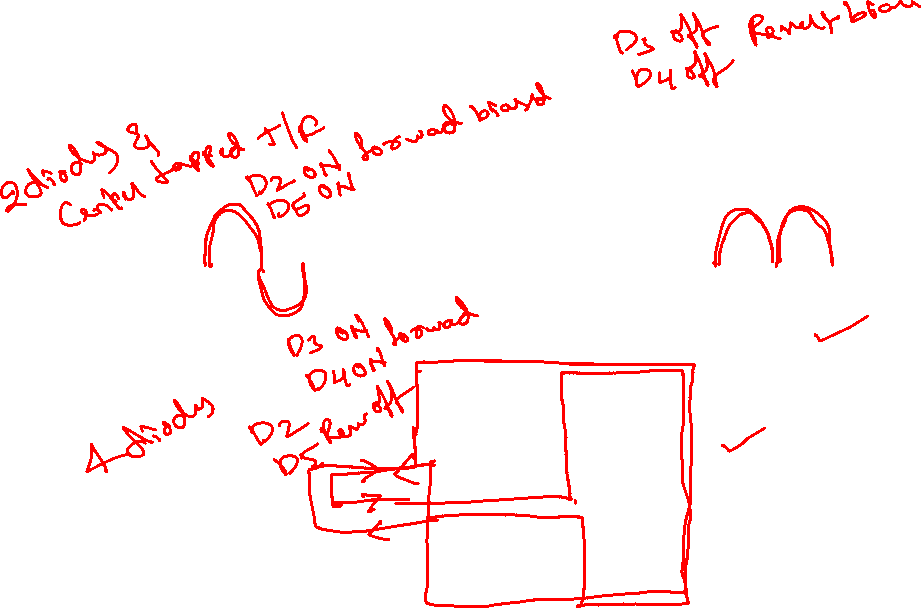 D3 off Revers bias
D4 off
2 diodes &
Center tapped T/R
D2 ON forwad biased
D5 ON
D3 ON forwad
D4 ON
4 diodes
D2 Rev off
D5